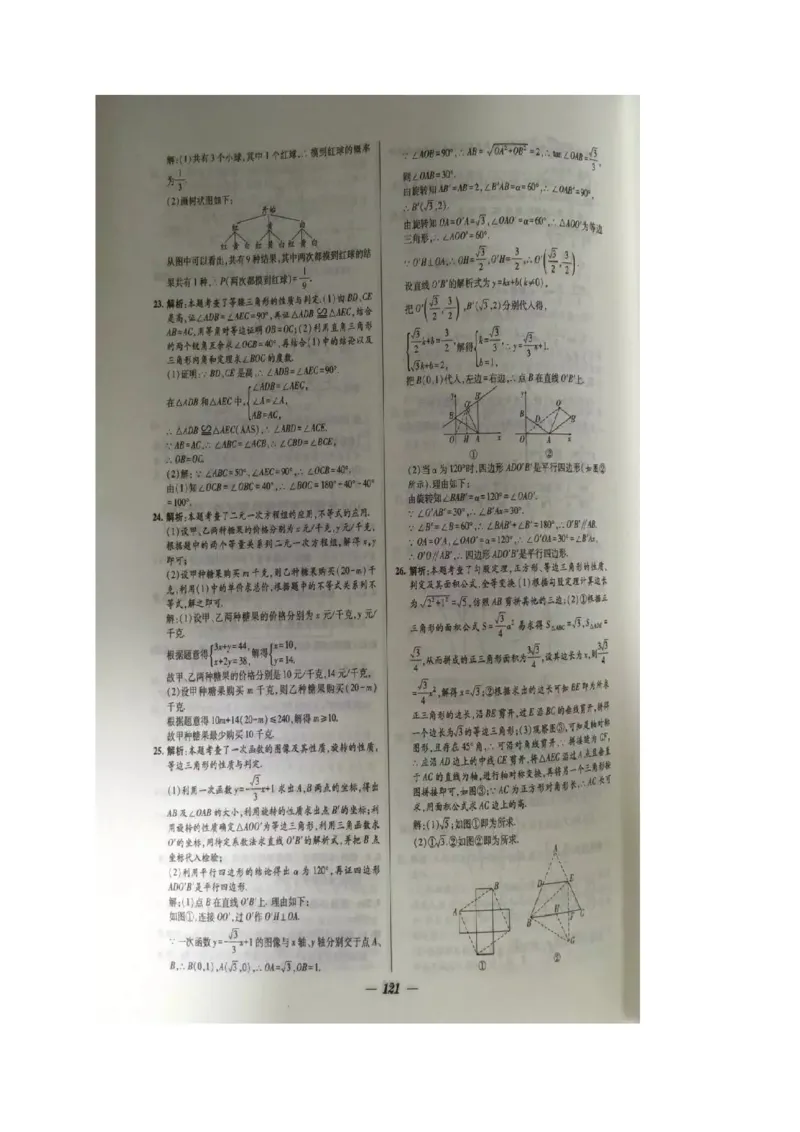 解:(1)共有3个小球,其中1个红球,∴摸到红球的概率
为1/3.
(2)画树状图如下:
开始
红 黄 白
红 黄 白 红 黄 白 红 黄 白
从图中可以看出,共有9种结果,其中两次都摸到红球的结
果共有1种,∴P(两次都摸到红球)=1/9.
23. 解析:本题考查了等腰三角形的性质与判定.(1)由BD、CE
是高,证∠ADB=∠AEC=90°,再证△ADB≌△AEC,结合
AB=AC,用等角对等边证明OB=OC;(2)利用直角三角形
的两个锐角互余求∠OCB=40°,再结合(1)中的结论以及
三角形内角和定理求∠BOC的度数.
(1)证明:∵BD、CE是高,∴∠ADB=∠AEC=90°.
在△ADB和△AEC中,{∠ADB=∠AEC,
∠A=∠A,
AB=AC,
∴△ADB≌△AEC(AAS),∴∠ABD=∠ACE.
∵AB=AC,∴∠ABC=∠ACB,∴∠CBD=∠BCE,
∴OB=OC.
(2)解:∵∠ABC=50°,∠AEC=90°,∴∠OCB=40°.
由(1)知∠OCB=∠OBC=40°,∴∠BOC=180°-40°-40°
=100°.
24. 解析:本题考查了二元一次方程组的应用,不等式的应用.
(1)设甲、乙两种糖果的价格分别为x元/千克、y元/千克,
根据题中的两个等量关系列二元一次方程组,解得x,y
即可;
(2)设甲种糖果购买m千克,则乙种糖果购买(20-m)千
克,利用(1)中的单价求总价,根据题中的不等式关系列不
等式,解之即可.
解:(1)设甲、乙两种糖果的价格分别为x元/千克,y元/
千克.
根据题意得{3x+y=44, x+2y=38, 解得{x=10, y=14.
故甲、乙两种糖果的价格分别是10元/千克,14元/千克.
(2)设甲种糖果购买m千克,则乙种糖果购买(20-m)
千克.
根据题意得10m+14(20-m)≤240,解得m≥10.
故甲种糖果最少购买10千克.
25. 解析:本题考查了一次函数的图像及其性质,旋转的性质,
等边三角形的性质与判定.
(1)利用一次函数y=-√3/3x+1求出A、B两点的坐标,得出
AB及∠OAB的大小,利用旋转的性质求出点B′的坐标;利
用旋转的性质确定△AOO′为等边三角形,利用三角函数求
O′的坐标,用待定系数法求直线O′B′的解析式,并把B点
坐标代入检验;
(2)利用平行四边形的结论得出α为120°,再证四边形
ADO′B′是平行四边形.
解:(1)点B在直线O′B′上.理由如下:
如图①,连接OO′,过O′作O′H⊥OA.
∵一次函数y=-√3/3x+1的图像与x轴、y轴分别交于点A、
B,∴B(0,1),A(√3,0),∴OA=√3,OB=1.
∵∠AOB=90°,∴AB=√OA²+OB²=2,∴tan∠OAB=√3/3,
则∠OAB=30°.
由旋转知AB′=AB=2,∠B′AB=α=60°,∴∠OAB′=90°,
∴B′(√3,2).
由旋转知OA=O′A=√3,∠OAO′=α=60°,∴△AOO′为等边
三角形,∴∠AOO′=60°.
∵O′H⊥OA,∴OH=√3/2,O′H=3/2,∴O′(√3/2,3/2).
设直线O′B′的解析式为y=kx+b(k≠0),
把O′(√3/2,3/2),B′(√3,2)分别代入得,
{√3/2k+b=3/2, √3k+b=2, 解得{k=√3/3, b=1, ∴y=√3/3x+1.
把B(0,1)代入,左边=右边,∴点B在直线O′B′上.
y B O′ B′ O H A x
y B D O′ B′ O A x
① ②
(2)当α为120°时,四边形ADO′B′是平行四边形(如图②
所示).理由如下:
由旋转知∠BAB′=α=120°=∠OAO′.
∵∠O′AB′=30°,∴∠B′Ax=30°.
∵∠B′=∠B=60°,∴∠BAB′+∠B′=180°,∴O′B′∥AB.
∵OA=O′A,∠OAO′=α=120°,∴∠O′OA=30°=∠B′Ax,
∴O′O∥AB′,∴四边形ADO′B′是平行四边形.
26. 解析:本题考查了勾股定理,正方形、等边三角形的性质、
判定及其面积公式,全等变换.(1)根据勾股定理计算边长
为√2²+1²=√5,仿照AB剪拼其他的三边;(2)①根据三
三角形的面积公式S=√3/4a²易求得
√3/4,从而拼成的正三角形面积为3√3/4,设其边长为x,则3√3/4
=√3/4x²,解得x=√3;②根据求出的边长可知BE即为所求
正三角形的边长,沿BE剪开,过E沿BC的垂线剪开,拼得
一个边长为√3的等边三角形;(3)观察图③,可知是轴对称
图形,且存在45°角,∴可沿对角线剪开.∵拼接线为CF,
∴应沿AD边上的中线CE剪开,将△AEC沿过A点且垂直
于AC的直线为轴,进行轴对称变换,再将另一个三角形按
图拼接即可,如图③;∵AC为正方形对角彭长,∴AC长可
求,用面积公式求AC边上的高.
解:(1)√5;如图①即为所求.
(2)①√3.②如图②即为所求.
A B
①
A D E B H F C G
②
— 121 —